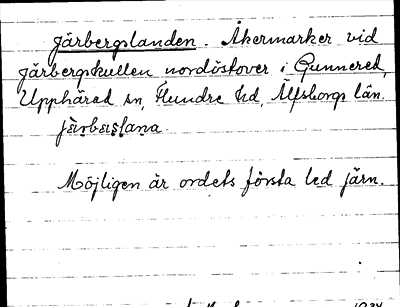 Järbergslanden. Åkermarker vid
Järbergskullen nordöstover i Gunnered,
Upphärad sn, Flundre hd, Älfsborgs län.
Möjligen är ordets första led järn.